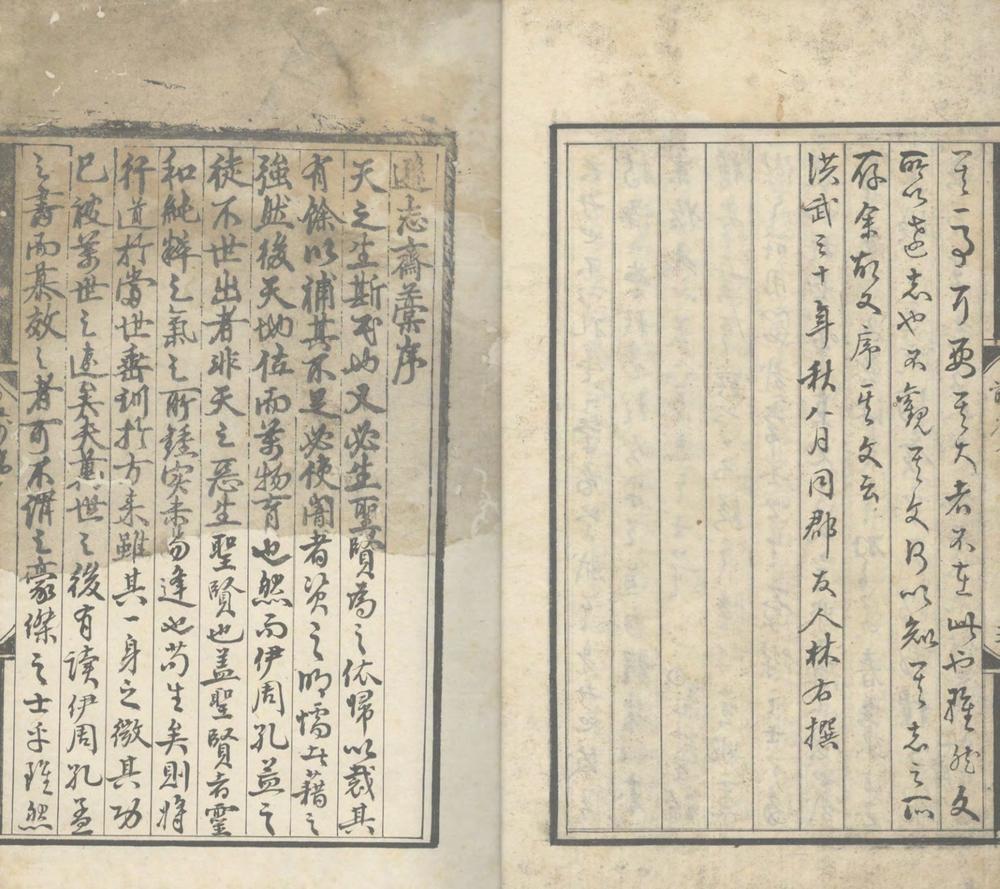 其一事可要其大者不在此也雖然文
所以達志也不觀其文何以知其志之所
存余故又序其文云
洪武三十年秋八月同郡友人林右撰
遜志齋藁序
天之生斯民也又必生聖賢為之依歸以裁其
有餘以補其不足必使闇者資之明懦者藉之
強然後天地位而萬物育也然而伊周孔孟之
徒不世出者非天之惡生聖賢也盖聖賢者靈
和純粹之氣之所鍾实未易逢也苟生矣則將
行道於當世垂訓於方来雖其一身之微其功
已被萬世之遠矣夫萬世之後有读伊周孔孟
之書而慕效之者可不謂之豪傑之士乎雖然